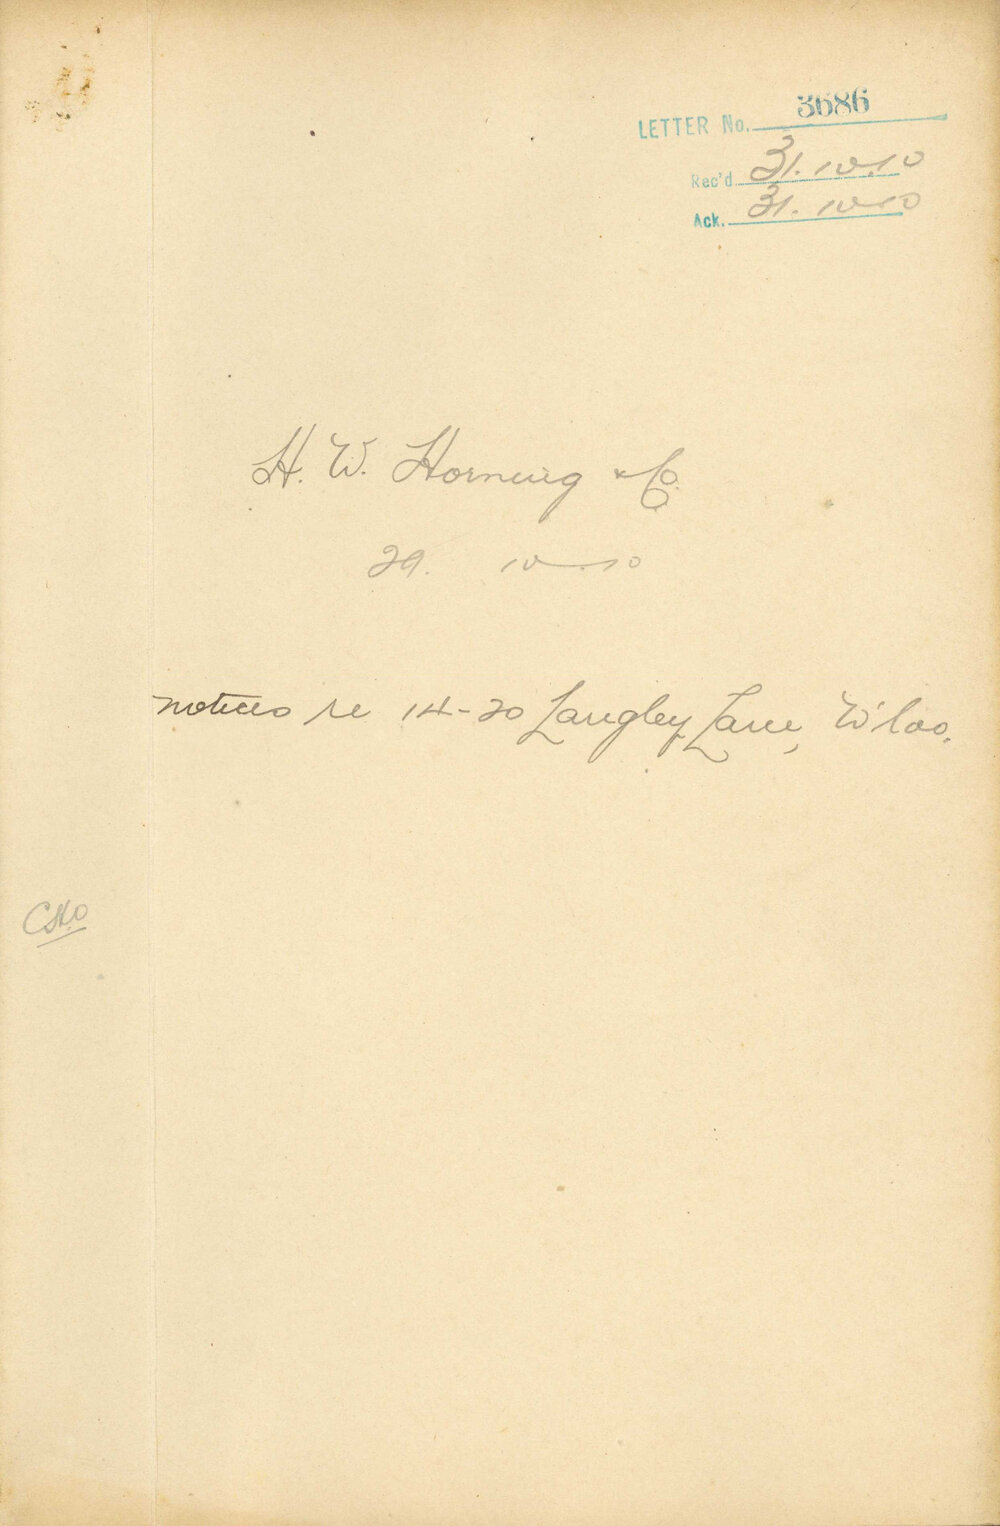 LETTER No. 3686
Rec'd 31.10.10
Ack. 31.10.10
H. W. Horning & Co.
29. 10.10
notices re 14-20 Langley Lane, W'loo.